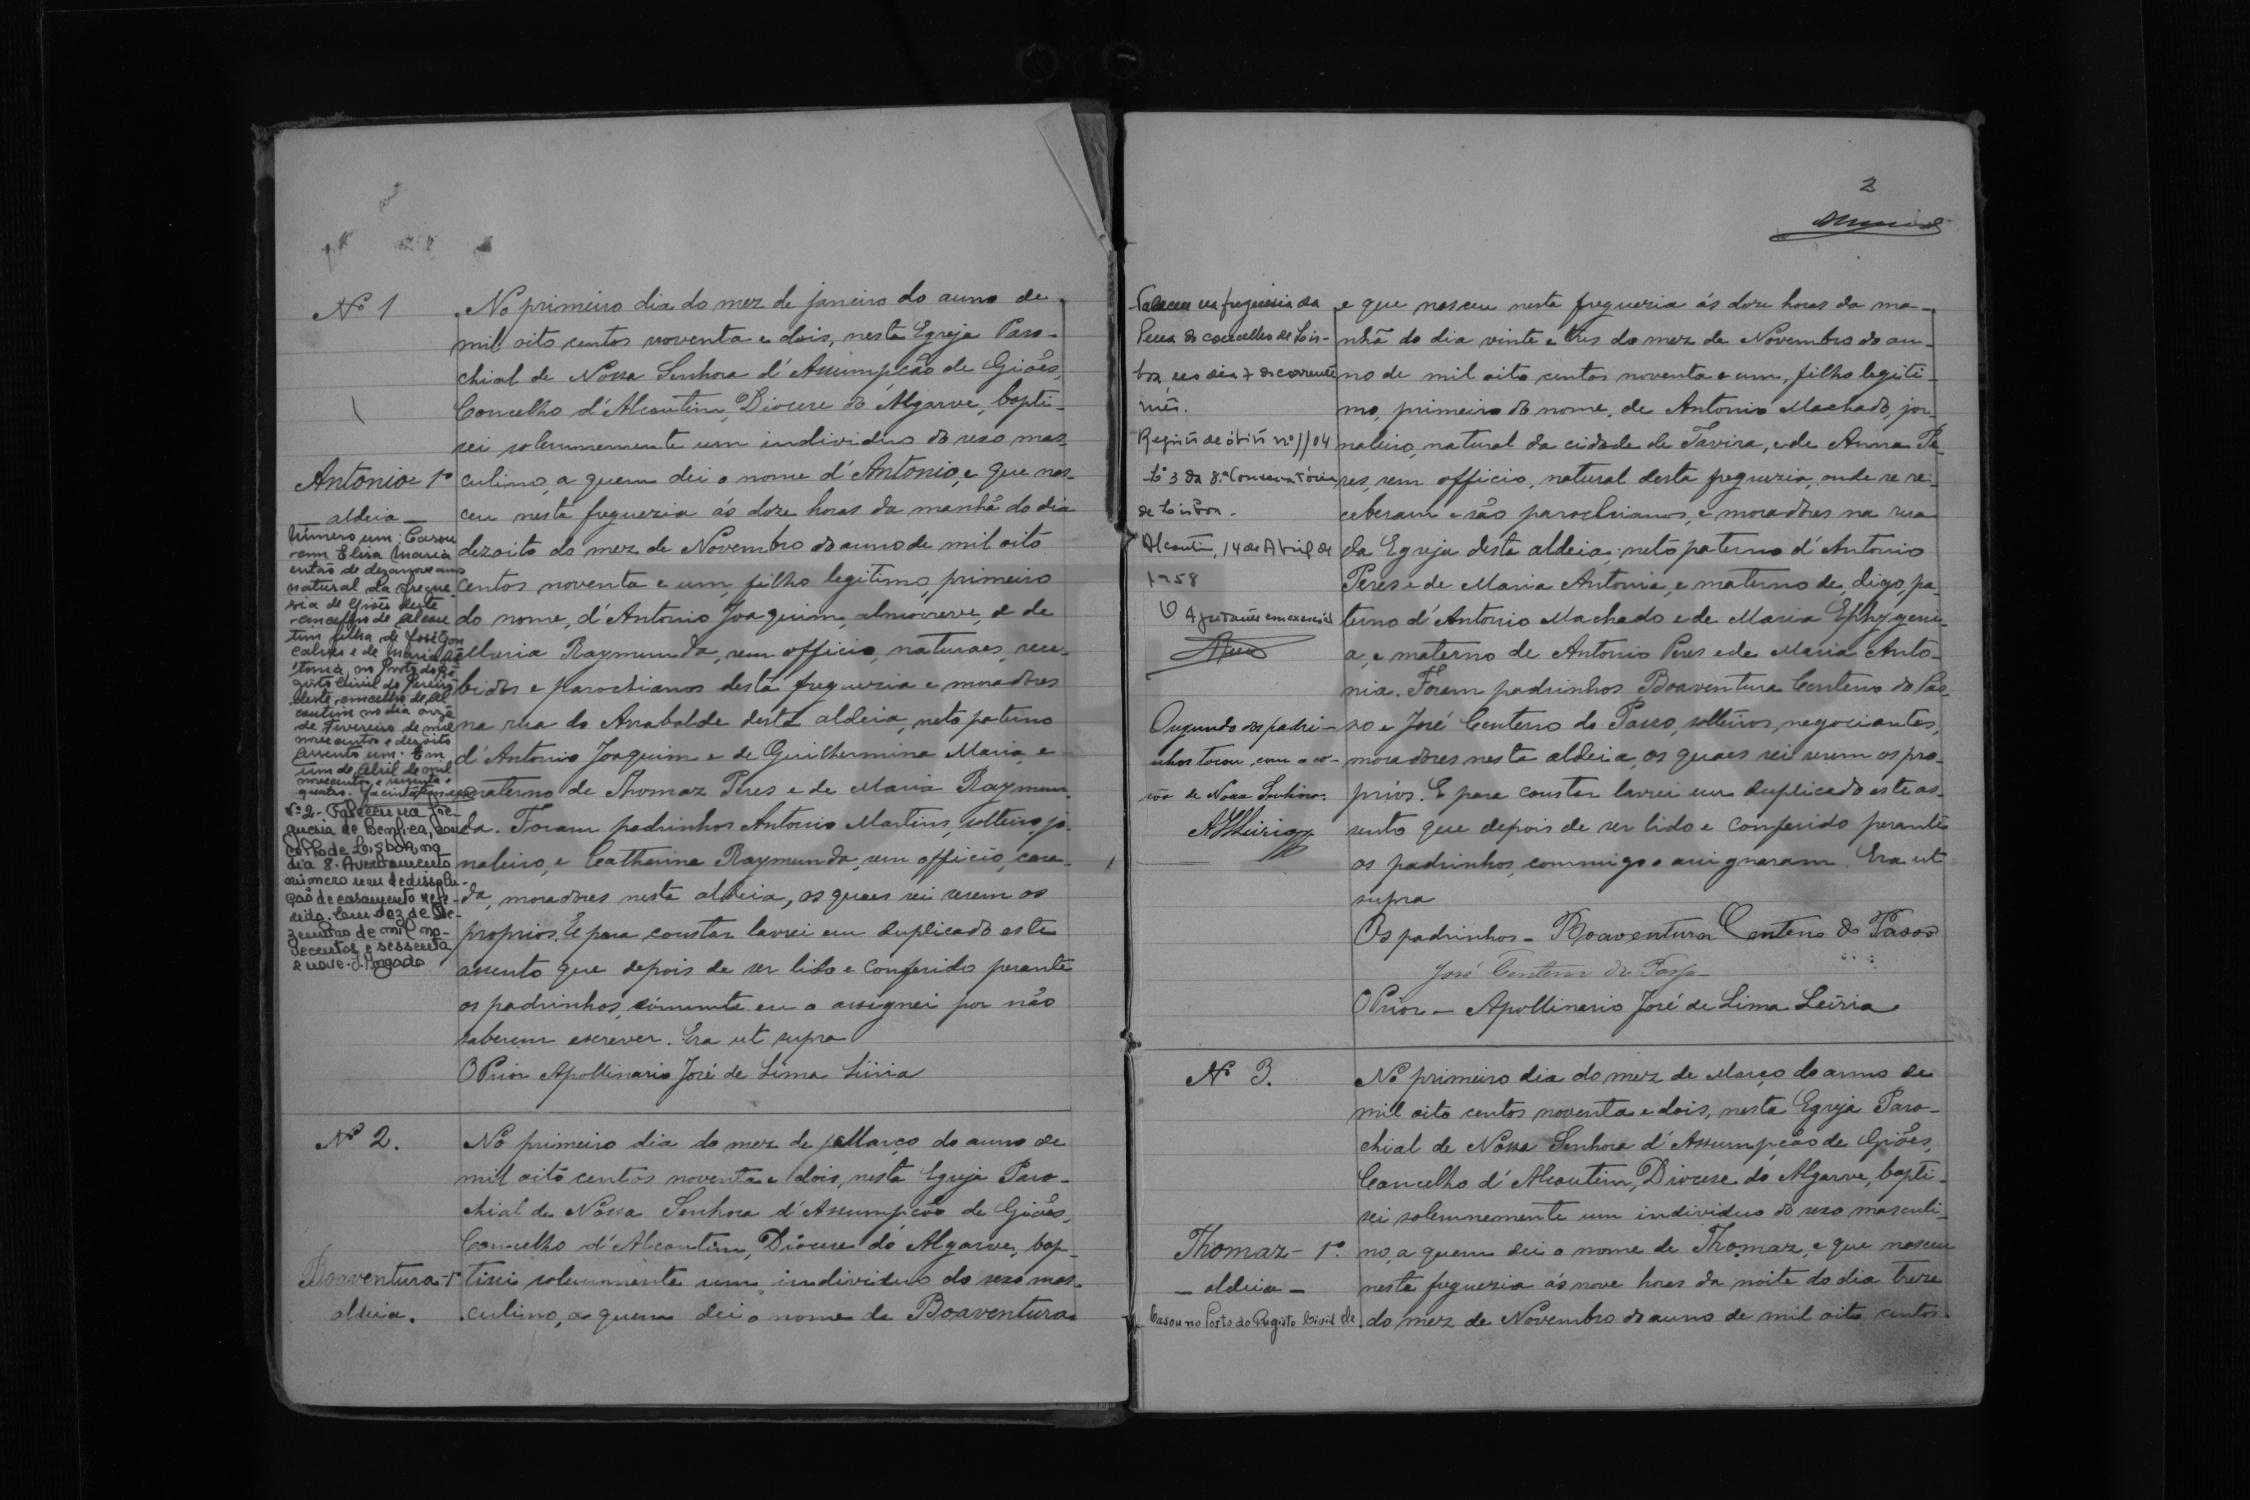 Nº 1
No primeiro dia do mez de janeiro do anno de
mil oito centos noventa e dois, nesta Egreja Paro-
chial de Nossa Senhora d'Assumpção de Giões,
Concelho d'Alcoutim, Diocese do Algarve, bapti-
sei solemnemente um individuo do sexo mas-
Antonio - 1º
aldeia -
culino, a quem dei o nome d'Antonio, e que nas-
ceu nesta freguezia ás doze horas da manhã do dia
dezoito do mez de Novembro do anno de mil oito
centos noventa e um, filho legitimo, primeiro
do nome, d'Antonio Joaquim, almocreve, e de
Maria Raymunda, sem officio, naturaes, rece-
bidos e parochianos desta freguezia e moradores
na rua do Arrabalde desta aldeia, neto paterno
d'Antonio Joaquim e de Guilhermina Maria, e
materno de Thomaz Peres e de Maria Raymun-
da. Foram padrinhos Antonio Martins, solteiro, jor-
naleiro, e Catherina Raymunda, sem officio, casa-
da, moradores nesta aldeia, os quaes sei serem os
proprios. E para constar lavrei em duplicado este
assento que depois de ser lido e conferido perante
os padrinhos, sómente eu o assignei por não
saberem escrever. Era ut supra
O Prior Apollinario José de Lima Leiria
Número um: Casou
com Elisa Maria
então de dezanove anos
natural da fregue-
sia de Giões deste
concelho de Alcou-
tim filha de José Gon
çalves e de Maria An
tónia, no Posto do Re-
gisto Civil do Pereiro
deste concelho de Al
coutim no dia onze
de Fevereiro de mil
novecentos e dezoito
Assento um. Em
um de Abril de mil
novecentos e sessenta e
quatro.
Nº 2 - Faleceu na fre-
guesia de Benfica, con-
celho de Lisboa, no
dia 8. Averbamento
número um de dissolu-
ção de casamento refe-
rido. Em dez de De-
zembro de mil no-
vecentos e sessenta
e nove.
Nº 2.
No primeiro dia do mez de Março do anno de
mil oito centos noventa e dois, nesta Egreja Paro-
chial de Nossa Senhora d'Assumpção de Giões,
Concelho d'Alcoutim, Diocese do Algarve, bap-
Boaventura - 1º
aldeia.
tisei solemnemente um individuo do sexo mas-
culino, a quem dei o nome de Boaventura
2
e que nasceu nesta freguezia ás doze horas da ma-
nhã do dia vinte e tres do mez de Novembro do an-
no de mil oito centos noventa e um, filho legiti-
mo, primeiro do nome, de Antonio Machado, jor-
naleiro, natural da cidade de Tavira, e de Anna Pe-
res, sem officio, natural desta freguezia, onde se re-
ceberam e são parochianos, e moradores na rua
da Egreja desta aldeia; neto paterno d'Antonio
Peres e de Maria Antonia, e materno de, digo, pa-
terno d'Antonio Machado e de Maria Ephygeni-
a, e materno de Antonio Peres e de Maria Anto-
nia. Foram padrinhos Boaventura Centeno do Pas-
so e José Centeno do Passo, solteiros, negociantes,
moradores nesta aldeia, os quaes sei serem os pro-
prios. E para constar lavrei em duplicado este as-
sento que depois de ser lido e conferido perante
os padrinhos, commigo o assignaram. Era ut
supra
Os padrinhos - Boaventura Centeno do Passo
José Centeno do Passo
O Prior - Apollinario José de Lima Leiria
Faleceu na freguesia da
Pena do concelho de Lis-
boa, no dia 7 do corrente
mês.
Registo de óbito nº 1104
Lº 3 da 8.ª Conservatória
de Lisboa.
Alcoutim, 14 de Abril de
1958
O Ajudante em exercício
O segundo dos padri-
nhos tocou com a co-
roa de Nossa Senhora.
Nº 3.
No primeiro dia do mez de Março do anno de
mil oito centos noventa e dois, nesta Egreja Paro-
chial de Nossa Senhora d'Assumpção de Giões,
Concelho d'Alcoutim, Diocese do Algarve, bapti-
sei solemnemente um individuo do sexo masculi-
Thomaz - 1º.
- aldeia -
no, a quem dei o nome de Thomaz, e que nasceu
nesta freguezia ás nove horas da noite do dia treze
do mez de Novembro do anno de mil oito centos
Casou no Posto do Registo Civil de